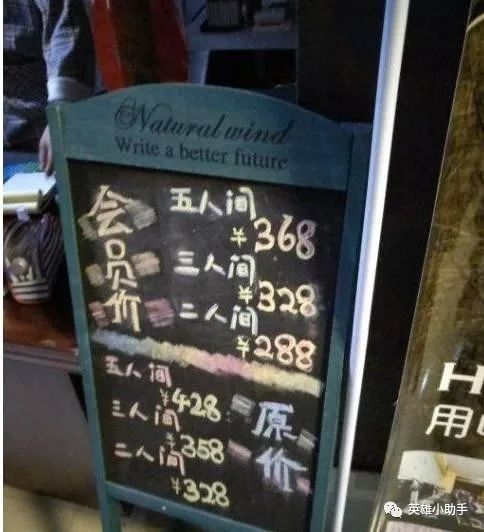 Natural wind
Write a better future
会员价
五人间
¥368
三人间
¥328
二人间
¥288
五人间
¥428
三人间
¥358
二人间
¥328
原价
H
用
英雄小助手